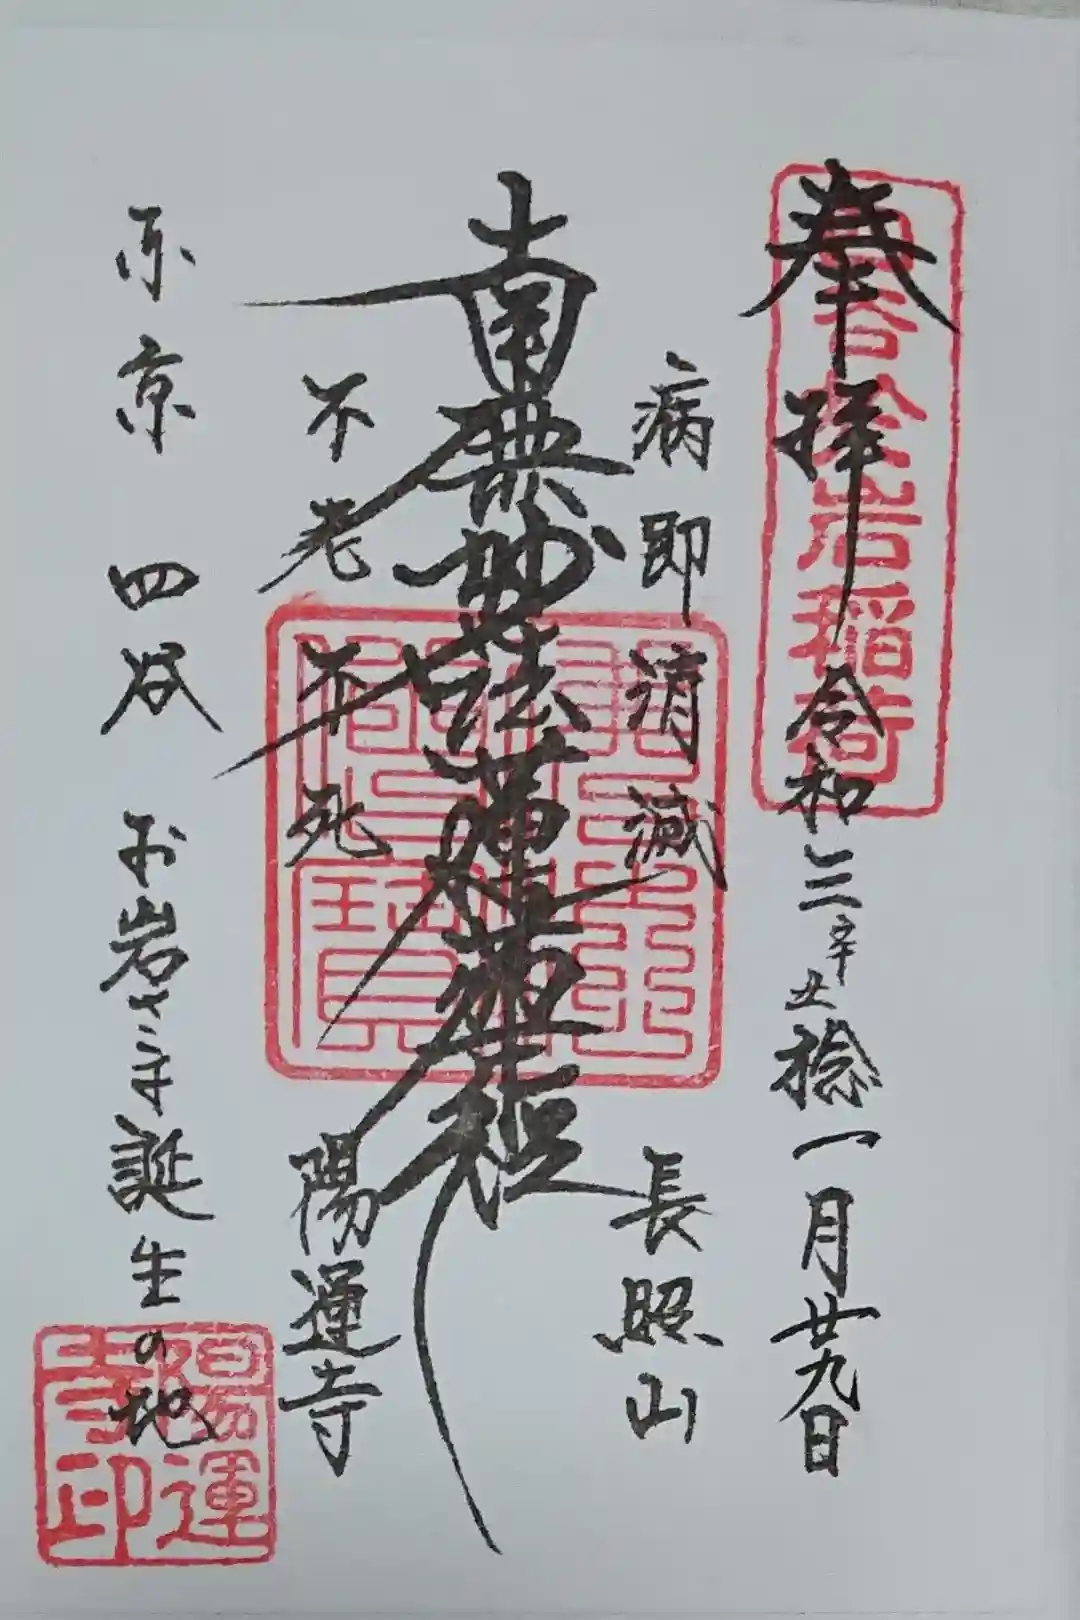 奉拝 令和三辛丑稔一月廿九日
四谷於岩稲荷
病即消滅 長照山
南無妙法蓮華経
不老不死 陽運寺
東京 四谷 お岩さま誕生の地
陽運寺印